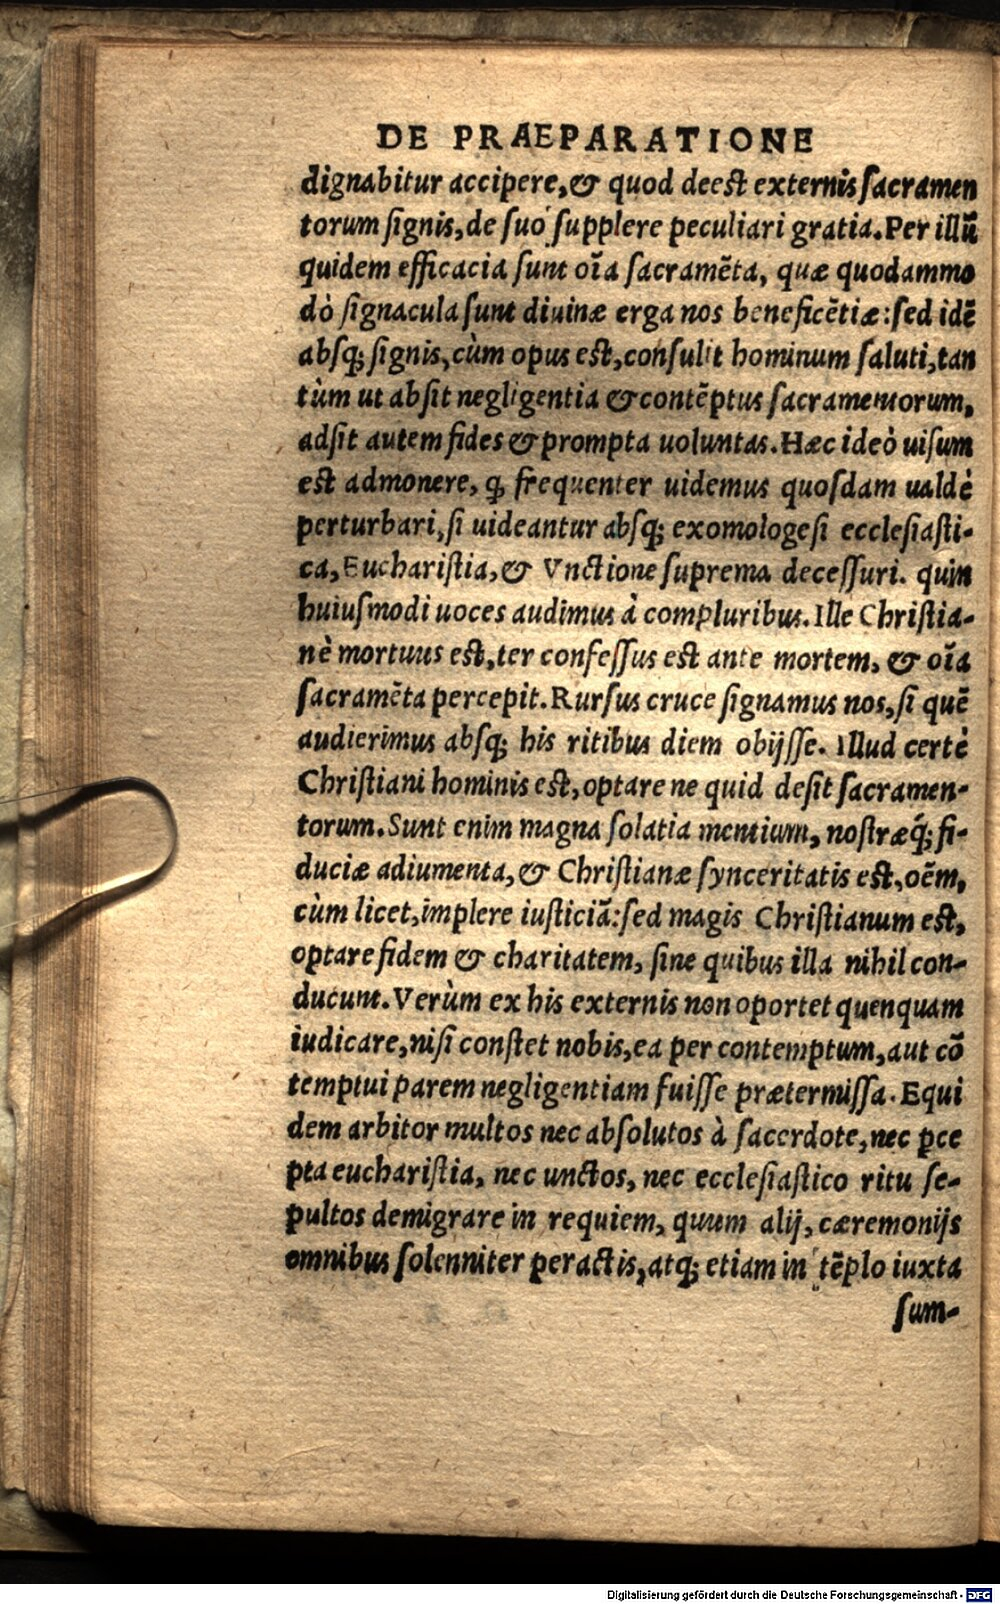 DE PRAEPARATIONE
dignabitur accipere, & quod deest externis sacramen
torum signis, de suo supplere peculiari gratia. Per illũ
quidem efficacia sunt oĩa sacramẽta, quæ quodammo
dò signacula sunt diuinæ erga nos beneficẽtiæ: sed idẽ
absq; signis, cùm opus est, consulit hominum saluti, tan
tùm ut absit negligentia & contẽptus sacramentorum,
adsit autem fides & prompta uoluntas. Hæc ideò uisum
est admonere, ꝙ frequenter uidemus quosdam ualdè
perturbari, si uideantur absq; exomologesi ecclesiasti-
ca, Eucharistia, & Vnctione suprema decessuri. quin
huiusmodi uoces audimus à compluribus. Ille Christia-
nè mortuus est, ter confessus est ante mortem, & oĩa
sacramẽta percepit. Rursus cruce signamus nos, si quẽ
audierimus absq; his ritibus diem obijsse. Illud certè
Christiani hominis est, optare ne quid desit sacramen-
torum. Sunt enim magna solatia mentium, nostræq́; fi-
duciæ adiumenta, & Christianæ synceritatis est, oẽm,
cùm licet, implere iusticiã: sed magis Christianum est,
optare fidem & charitatem, sine quibus illa nihil con-
ducunt. Verùm ex his externis non oportet quenquam
iudicare, nisi constet nobis, ea per contemptum, aut cõ
temptui parem negligentiam fuisse prætermissa. Equi
dem arbitor multos nec absolutos à sacerdote, nec ꝑce
pta eucharistia, nec unctos, nec ecclesiastico ritu se-
pultos demigrare in requiem, quum alij, cæremonijs
omnibus solenniter peractis, atq; etiam in tẽplo iuxta
sum-
Digitalisierung gefördert durch die Deutsche Forschungsgemeinschaft - DFG